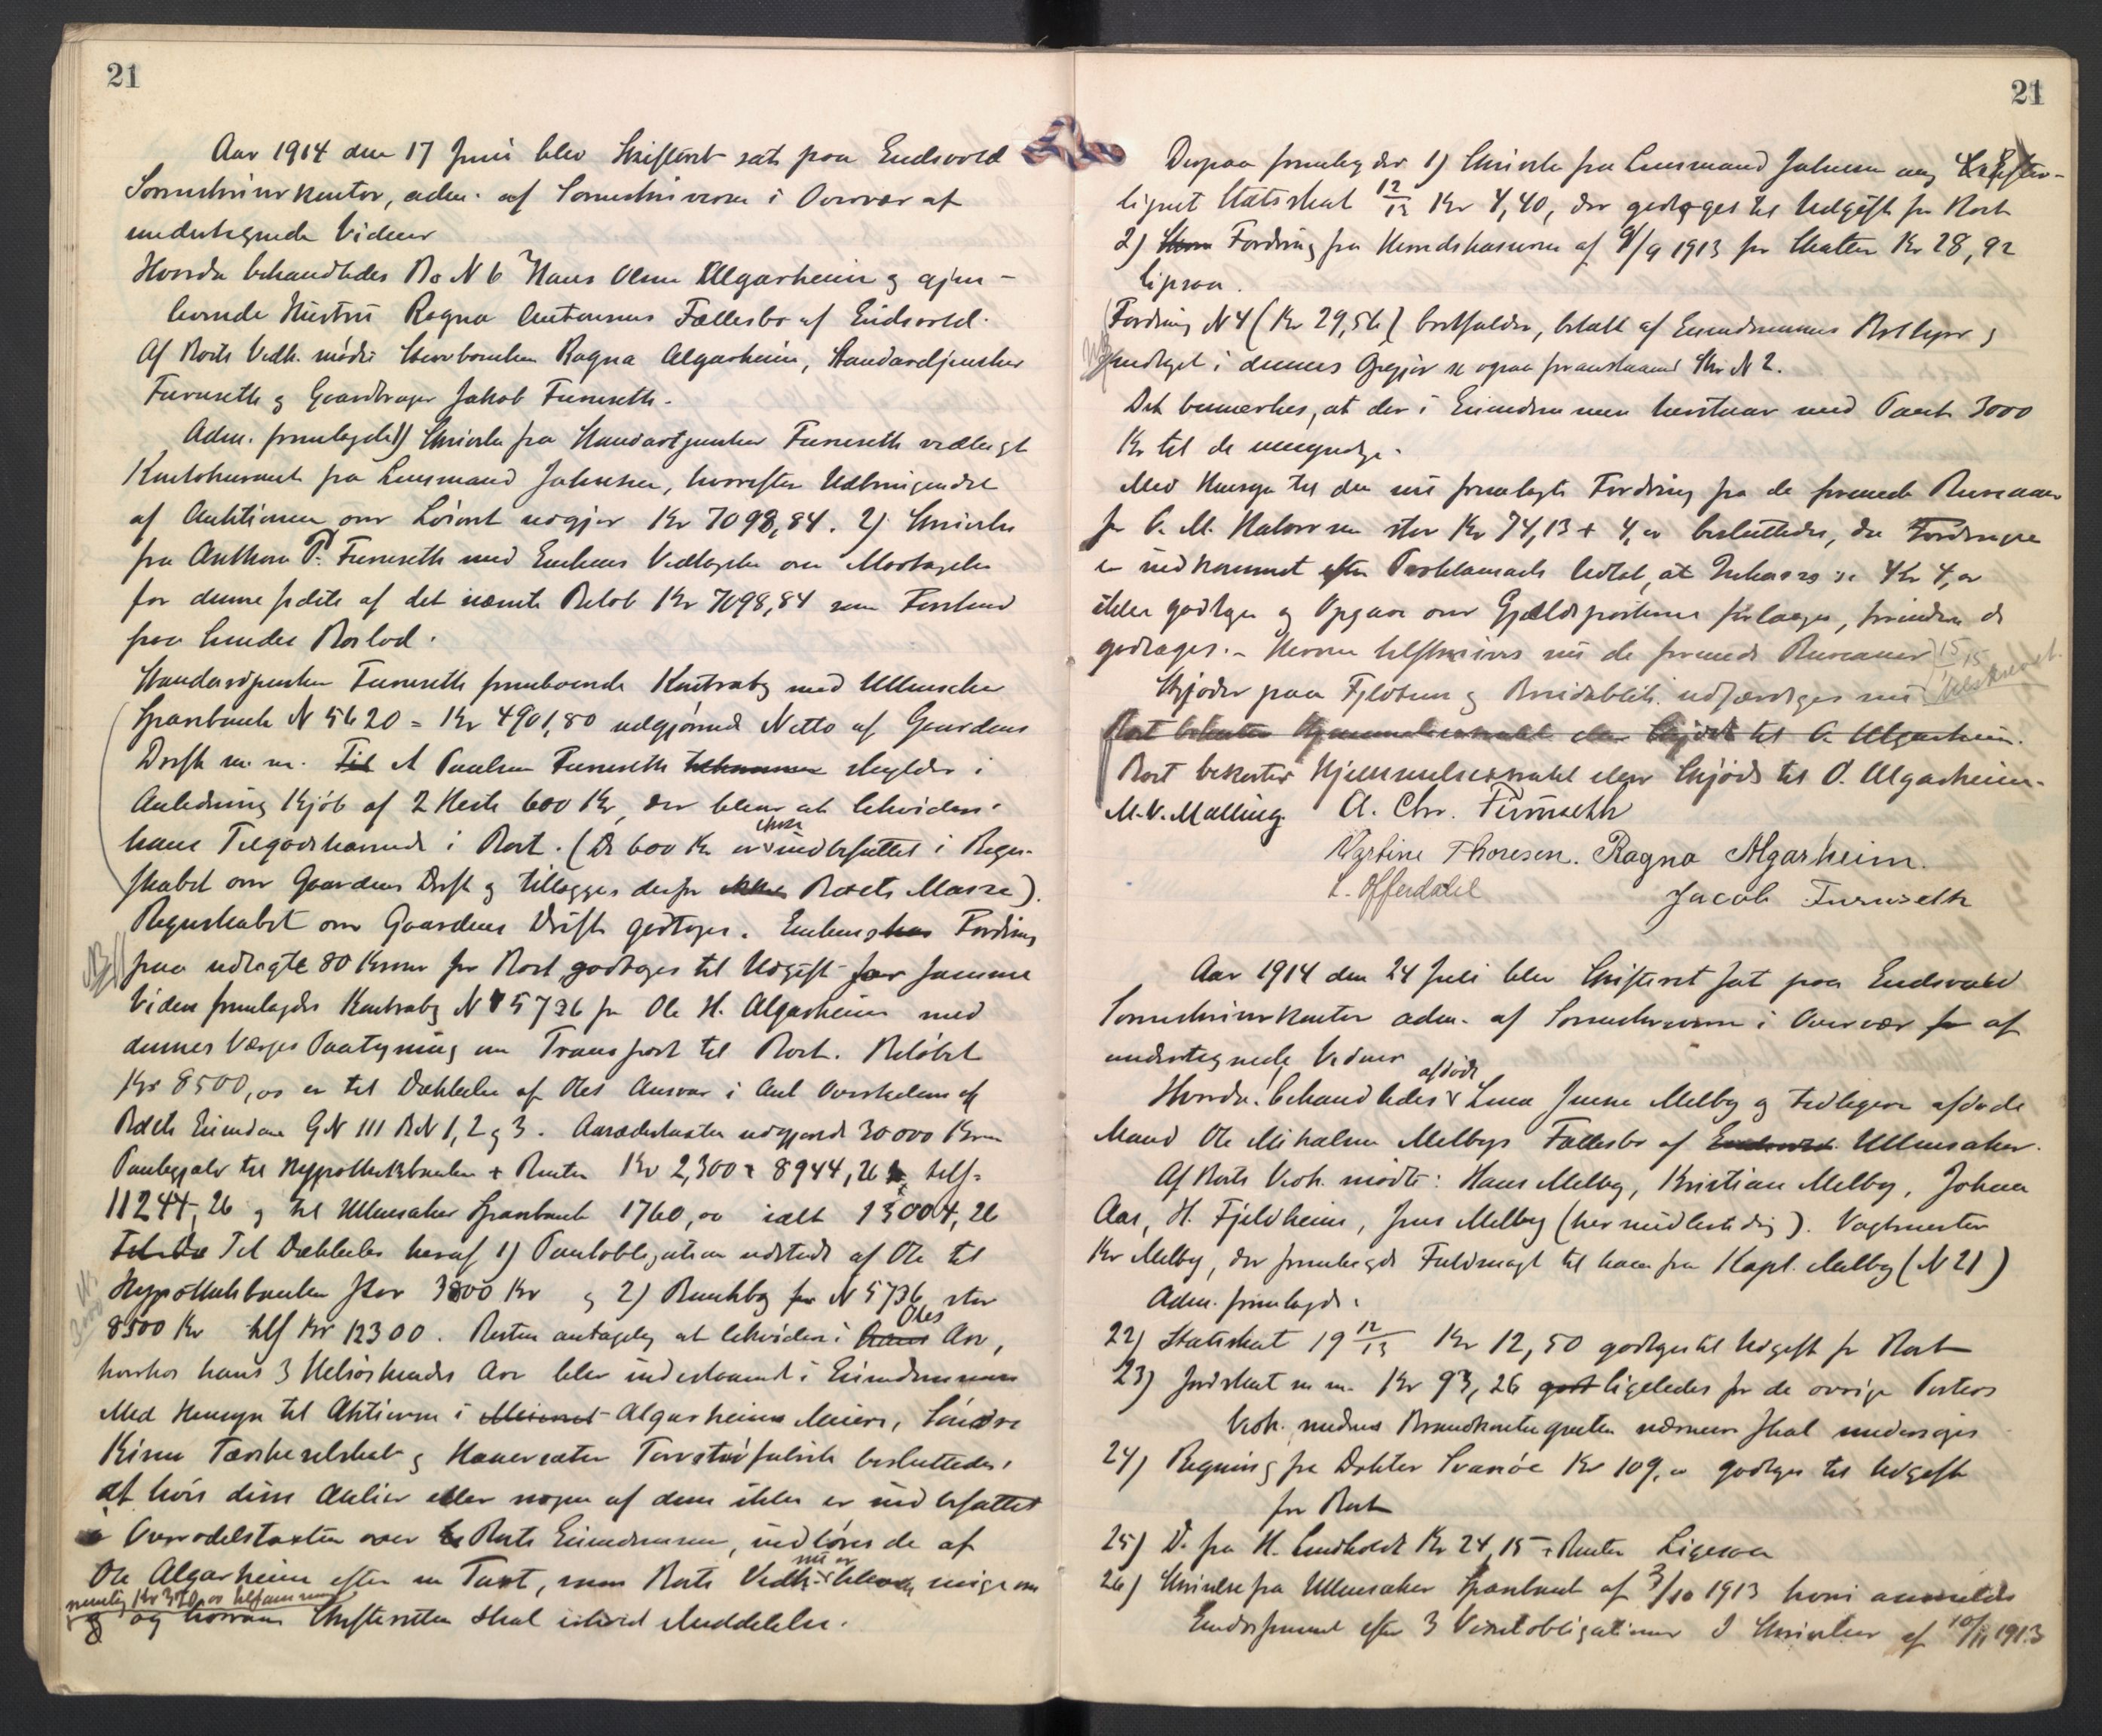 21
Aar 1914 den 17 Juni blev Skifteret sat paa Eidsvold
Sorenskriverkontor, adm. af Sorenskriveren i Overvær af
undertegnede Vidner
Hvorda behandledes Bo N 6 Hans Olsen Algarheim og gjen-
levende Hustru Ragna Antonsens Fællesbo af Eidsvold.
Af Boets Vedk. mødte Ragna Algarheim, Standardjunker
Furuseth og Gaardbruger Jakob Furuseth.
Adm. fremlagde 1) Skrivelse fra Standartjunker Furuseth vedlagt
Kontokurant fra Lensmand Johnsen, hvorefter Udbringendet
af Auktionen over Løsøret udgjør Kr 7098,84. 2) Skrivelse
fra Anthon P. Furuseth med Enkens Vedtagelse om Modtagelse
for dennes af det nævnte Beløb Kr 7098,84 som Forskud
paa hendes Boslod.
Standardjunker Furuseth Kontrabog med Ullensaker
Sparebank N 5620 = Kr 4901,80 udgjørende Netto af Gaardens
Drift m. m. Til A Paulsen Furuseth tilkommer skyldes i
Anledning Kjøb af 2 Heste 600 Kr, der bliver at likvidere i
hans Tilgodehavende i Boet. (De 600 Kr er ikke indbefattet i Regn-
skabet om Gaardens Drift og tillægges derfor ikke Boets Masse).
Regnskabet over Gaardens Drift godtages. Enkens Fordring
paa udlagte 80 Kroner for Boet godtages til Udgift for Samme
Viden fremlagdes Kontrabog N 5736 for Ole H. Algarheim med
dennes Værges Paategning om Transport til Boet. Beløbet
Kr 8500,00 er til Dækkelse af Oles Ansvar i Anl Overtagelsen af
Boets Eiendom GN 111 BN 1, 2 og 3. Aasædestaxten udgjorde 30000 Kroner
Pantegjæld til Hypothekbanken + Renter Kr 2,300 + 8944,26 tils.
11244,26 og til Ullensaker Sparebank 1760,00 ialt 13004,26
Til Dækkelse heraf 1) Pantobligation udstedt af Ole til
Hypothekbanken stor 3800 Kr og 2) Bankbog N 5736 stor
8500 Kr tils Kr 12300. Resten antagelig at likvidere i Oles Arv,
hvorhos hans 3 Helsøskendes Arv bliver indestaaende i Eiendommen
Med Hensyn til Aktierne i Meieriet Algarheims Meieri, Søndre
Kisen Tærskeselskab og Hauersæter Torvstrøfabrik besluttedes,
at hvis disse Aktier eller nogen af dem ikke er indbefattet
i Overodelstaxten over Boets Eiendommen, indløses de af
Ole Algarheim efter en Taxt, som Boets Vedk. nu er enige om
nemlig Kr 370,00 tilsammen
og hvorom Skifteretten skal Meddelelse.
21
Derpaa fremlagdes 1) Skrivelse fra Lensmand Johnsen ang Efter-
lignet Statsskat 12/13 Kr 4,40, der godtages til Udgift for Boet
2) Fordring fra Herredskasseren af 9/9 1913 for Skatter Kr 28,92
ligesaa.
Fordring N 4 (Kr 29,56) bortfalder, betalt af Eiendommens Bestyrer og
indtaget i dennes Opgjør se ogsaa foranstaaende Skr N 2.
Det bemærkes, at der i Eiendommen henstaar med Pant 3000
Kr til de umyndige.
Med Hensyn til den nu fremlagte Fordring fra de forenede Bureauer
for C. M. Halvorsen stor Kr 74,13 + 4,00 besluttedes, da Fordringen
er indkommet efter Proklamaets Udløb, at Inkasso Kr 4,00
ikke godtages og Opgave over Gjældsposterne forlanges, forinden de
godtages. - Herom tilskrives nu de forenede Bureauer 15/15
tilskrevet.
Skjøder paa Fjeldstuen og udfærdiges nu
Boet bekoster Hjemmelserklæring eller Skjøde til O. Algarheim.
Boet bekoster Hjemmelserklæring eller Skjøde til O. Algarheim.
M. V. Malling. A. Chr. Furuseth
Martine Thoresen. Ragna Algarheim.
L. Offerdahl Jacob Furuseth
Aar 1914 den 24 Juli blev Skifteret sat paa Eidsvold
Sorenskriverkontor adm. af Sorenskriveren i Overvær af
undertegnede Vidner
Hvorda behandledes afdøde Lina Melby og tidligere afdøde
Mand Ole Mikalsen Melbys Fællesbo af Eidsvold Ullensaker.
Af Boets Vedk. mødte: Hans Melby, Kristian Melby, Johan
Aas, H. Fjeldheim, Jens Melby (her midlertidig). Vagtmester
Kr Melby, der fremlagde Fuldmagt til ham fra Kapt. Melby (N 21)
Adm. fremlagde:
22) Statsskat 19 12/13 Kr 12,50 godtages til Udgift for Boet
23) Jordskat m m. Kr 93,26 ligeledes for de øvrige Posters
Vedk. medens Brandkontingenten nærmere skal undersøges
24) Regning fra Doktor Svanøe Kr 109,00 godtages til Udgift
for Boet
25) Do fra H. Lindholdt Kr 24,15 + Renter Ligesaa
26) Skrivelse fra Ullensaker Sparebank af 3/10 1913 hvori anmeldes
Endossement efter 3 Vexelobligationer I Skrivelser af 10/11 1913